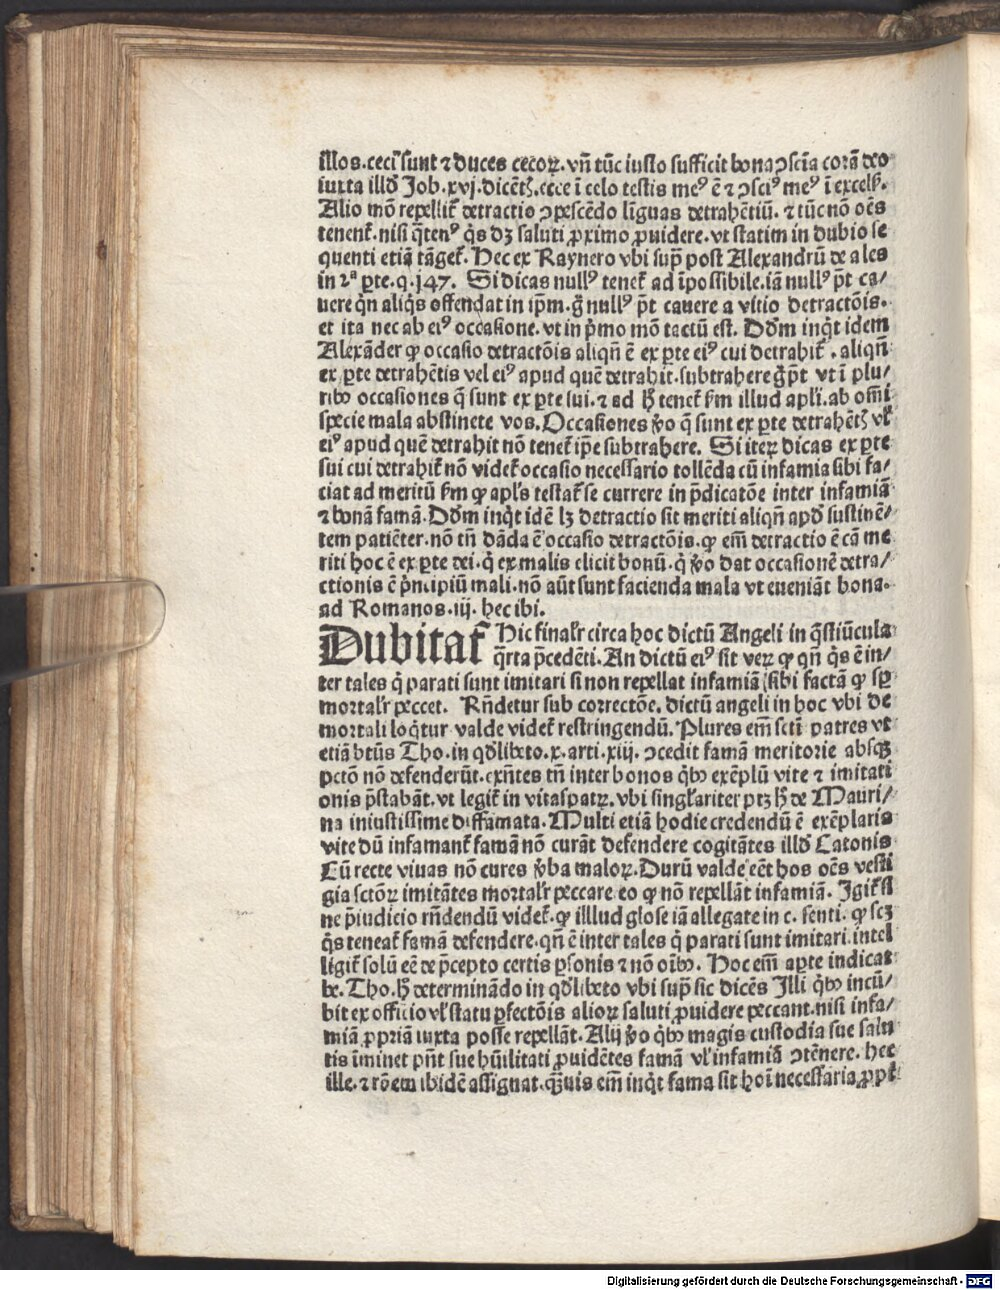 illos. ceci sunt ⁊ duces cecoꝝ. vñ tūc iusto sufficit bona ↄsciã corã deo
iuxta illđ Job. xvj. dicẽtꝭ. ecce ĩ celo testis meꝰ ẽ ⁊ ↄsciꝰ meꝰ ĩ excelꝭ.
Alio mõ repellit᷑ detractio ↄpescẽdo lĩguas detrahẽtiũ. ⁊ tũc nõ oẽs
tenent᷑. nisi q̃tenꝰ q̇s dꝫ saluti ꝓximo ꝓuidere. vt statim in dubio se
quenti etiã tãget᷑. Hec ex Raynero vbi sup̃ post Alexandrũ de ales
in 2ª ꝑte. q. 147. Si dicas nullꝰ tenet᷑ ad ĩpossibile. iã nullꝰ p̃t ca/
uere q̇n aliq̇s offendat in ip̃m. g̃ nullꝰ p̃t cauere a vitio detractõis.
et ita nec ab eiꝰ occasione. vt in p̃mo mõ tactũ est. Dđm inq̇t idem
Alexãder ꝙ occasio detractõis aliqñ ẽ ex ꝑte eiꝰ cui detrahit᷑. aliqñ
ex ꝑte detrahẽtis vel eiꝰ apud quẽ detrahit. subtrahere g̃ p̃t vt ĩ plu/
ribꝰ occasiones q̃ sunt ex ꝑte sui. ⁊ ad h̃ tenet᷑ ẜm illud apl̃i. ab om̃i
specie mala abstinete vos. Occasiones ṽo q̃ sunt ex ꝑte detrahẽtꝭ vl̃
eiꝰ apud quẽ detrahit nõ tenet᷑ ip̃e subtrahere. Si iteꝝ dicas ex ꝑte
sui cui detrahit᷑ nõ videt᷑ occasio necessario tollẽda cũ infamia sibi fa/
ciat ad meritũ ẜm ꝙ apl̃s testat᷑ se currere in p̃dicatõe inter infamiã
⁊ bonã famã. Dđm inq̇t idẽ lꝫ detractio sit meriti aliqñ apđ sustinẽ/
tem patiẽter. nõ tñ dãda ẽ occasio detractõis. ꝙ em̃ detractio ẽ cã me
riti hoc ẽ ex ꝑte dei. q̇ ex malis elicit bonũ. q̇ ṽo dat occasionẽ detra/
ctionis ẽ p̃ncipiũ mali. nõ aũt sunt facienda mala vt eueniãt bona.
ad Romanos. iij. hec ibi.
Dubitat᷑ Hic final̃r circa hoc dictũ Angeli in q̃stiũcula
q̃rta p̃cedẽti. An dictũ eiꝰ sit veꝝ ꝙ qñ q̇s ẽ in/
ter tales q̇ parati sunt imitari si non repellat infamiã sibi factã ꝙ sꝑ
mortal̃r peccet. Rñdetur sub correctõe. dictũ angeli in hoc vbi de
mortali loq̇tur valde videt᷑ restringendũ. Plures em̃ scti patres vt
etiã btũs Tho. in qđlibeto. x. arti. xiij. ↄcedit famã meritorie absqꝫ
pctõ nõ defenderũt. exñtes tñ inter bonos q̇bꝰ exẽplũ vite ⁊ imitati
onis p̃stabãt. vt legit᷑ in vitaspatꝝ. vbi singl̃ariter ptꝫ h̃ de Mauri/
na iniustissime diffamata. Multi etiã hodie credendũ ẽ exẽplaris
vite dũ infamant᷑ famã nõ curãt defendere cogitãtes illđ Catonis
Cũ recte viuas nõ cures ṽba maloꝝ. Durũ valde eẽt hos oẽs vesti
gia sctõꝝ imitãtes mortal̃r peccare eo ꝙ nõ repellãt infamiã. Igit᷑ si
ne p̃iudicio rñdendũ videt᷑. ꝙ illlud glose iã allegate in c. senti. ꝙ scꝫ
q̇s teneat᷑ famã defendere. qñ ẽ inter tales q̇ parati sunt imitari. intel
ligit᷑ solũ eẽ de p̃cepto certis ꝑsonis ⁊ nõ oĩbꝰ. Hoc em̃ aꝑte indicat
be. Tho. h̃ determinãdo in qđlibeto vbi sup̃ sic dicẽs Illi q̇bꝰ incũ/
bit ex officio vl̃ statu ꝑfectõis alioꝝ saluti ꝓuidere peccant. nisi infa/
miã ꝓpriã iuxta posse repellãt. Alij ṽo q̇bꝰ magis custodia sue salu
tis ĩminet pñt sue hũilitati ꝓuidẽtes famã vl̃ infamiã ↄtẽnere. hec
ille. ⁊ rõem ibidẽ assignat. q̃uis em̃ inq̇t fama sit hoĩ necessaria ꝓpt᷑
Digitalisierung gefördert durch die Deutsche Forschungsgemeinschaft - DFG